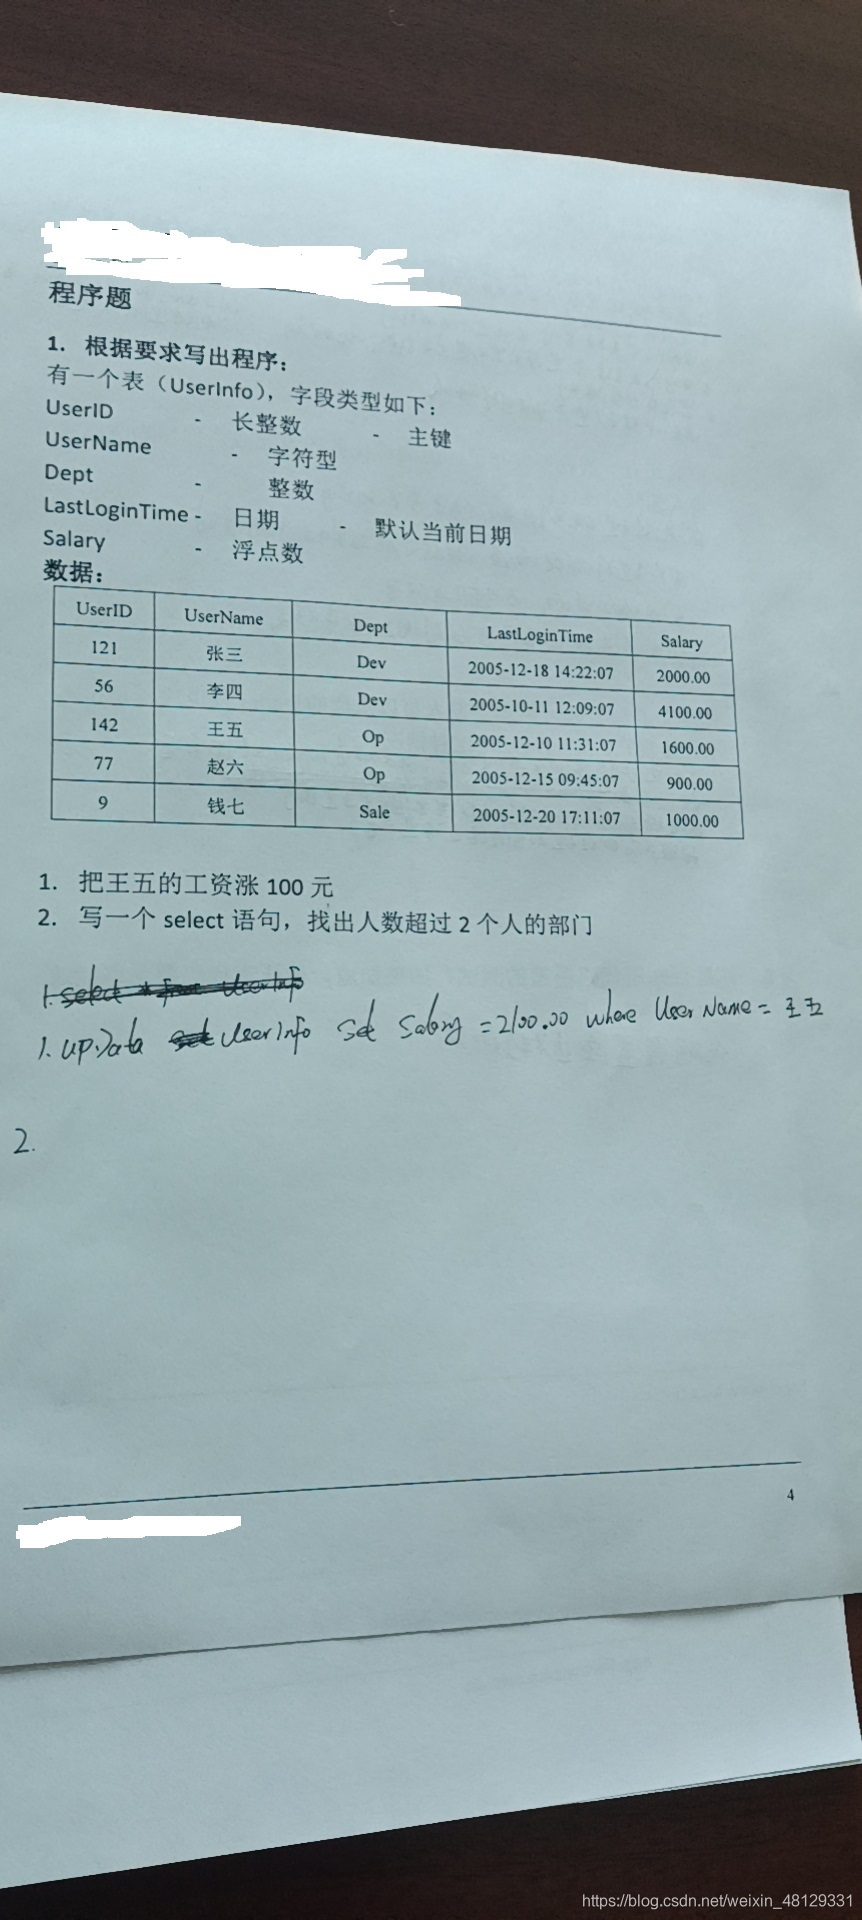 程序题
1. 根据要求写出程序：
有一个表（UserInfo），字段类型如下：
UserID - 长整数 - 主键
UserName - 字符型
Dept - 整数
LastLoginTime - 日期 - 默认当前日期
Salary - 浮点数
数据：
UserID UserName Dept LastLoginTime Salary
121 张三 Dev 2005-12-18 14:22:07 2000.00
56 李四 Dev 2005-10-11 12:09:07 4100.00
142 王五 Op 2005-12-10 11:31:07 1600.00
77 赵六 Op 2005-12-15 09:45:07 900.00
9 钱七 Sale 2005-12-20 17:11:07 1000.00
1. 把王五的工资涨 100 元
2. 写一个 select 语句，找出人数超过 2 个人的部门
1. select * from UserInfo
1. upData set UserInfo set Salary = 2100.00 where UserName = 王五
2.
4
https://blog.csdn.net/weixin_48129331